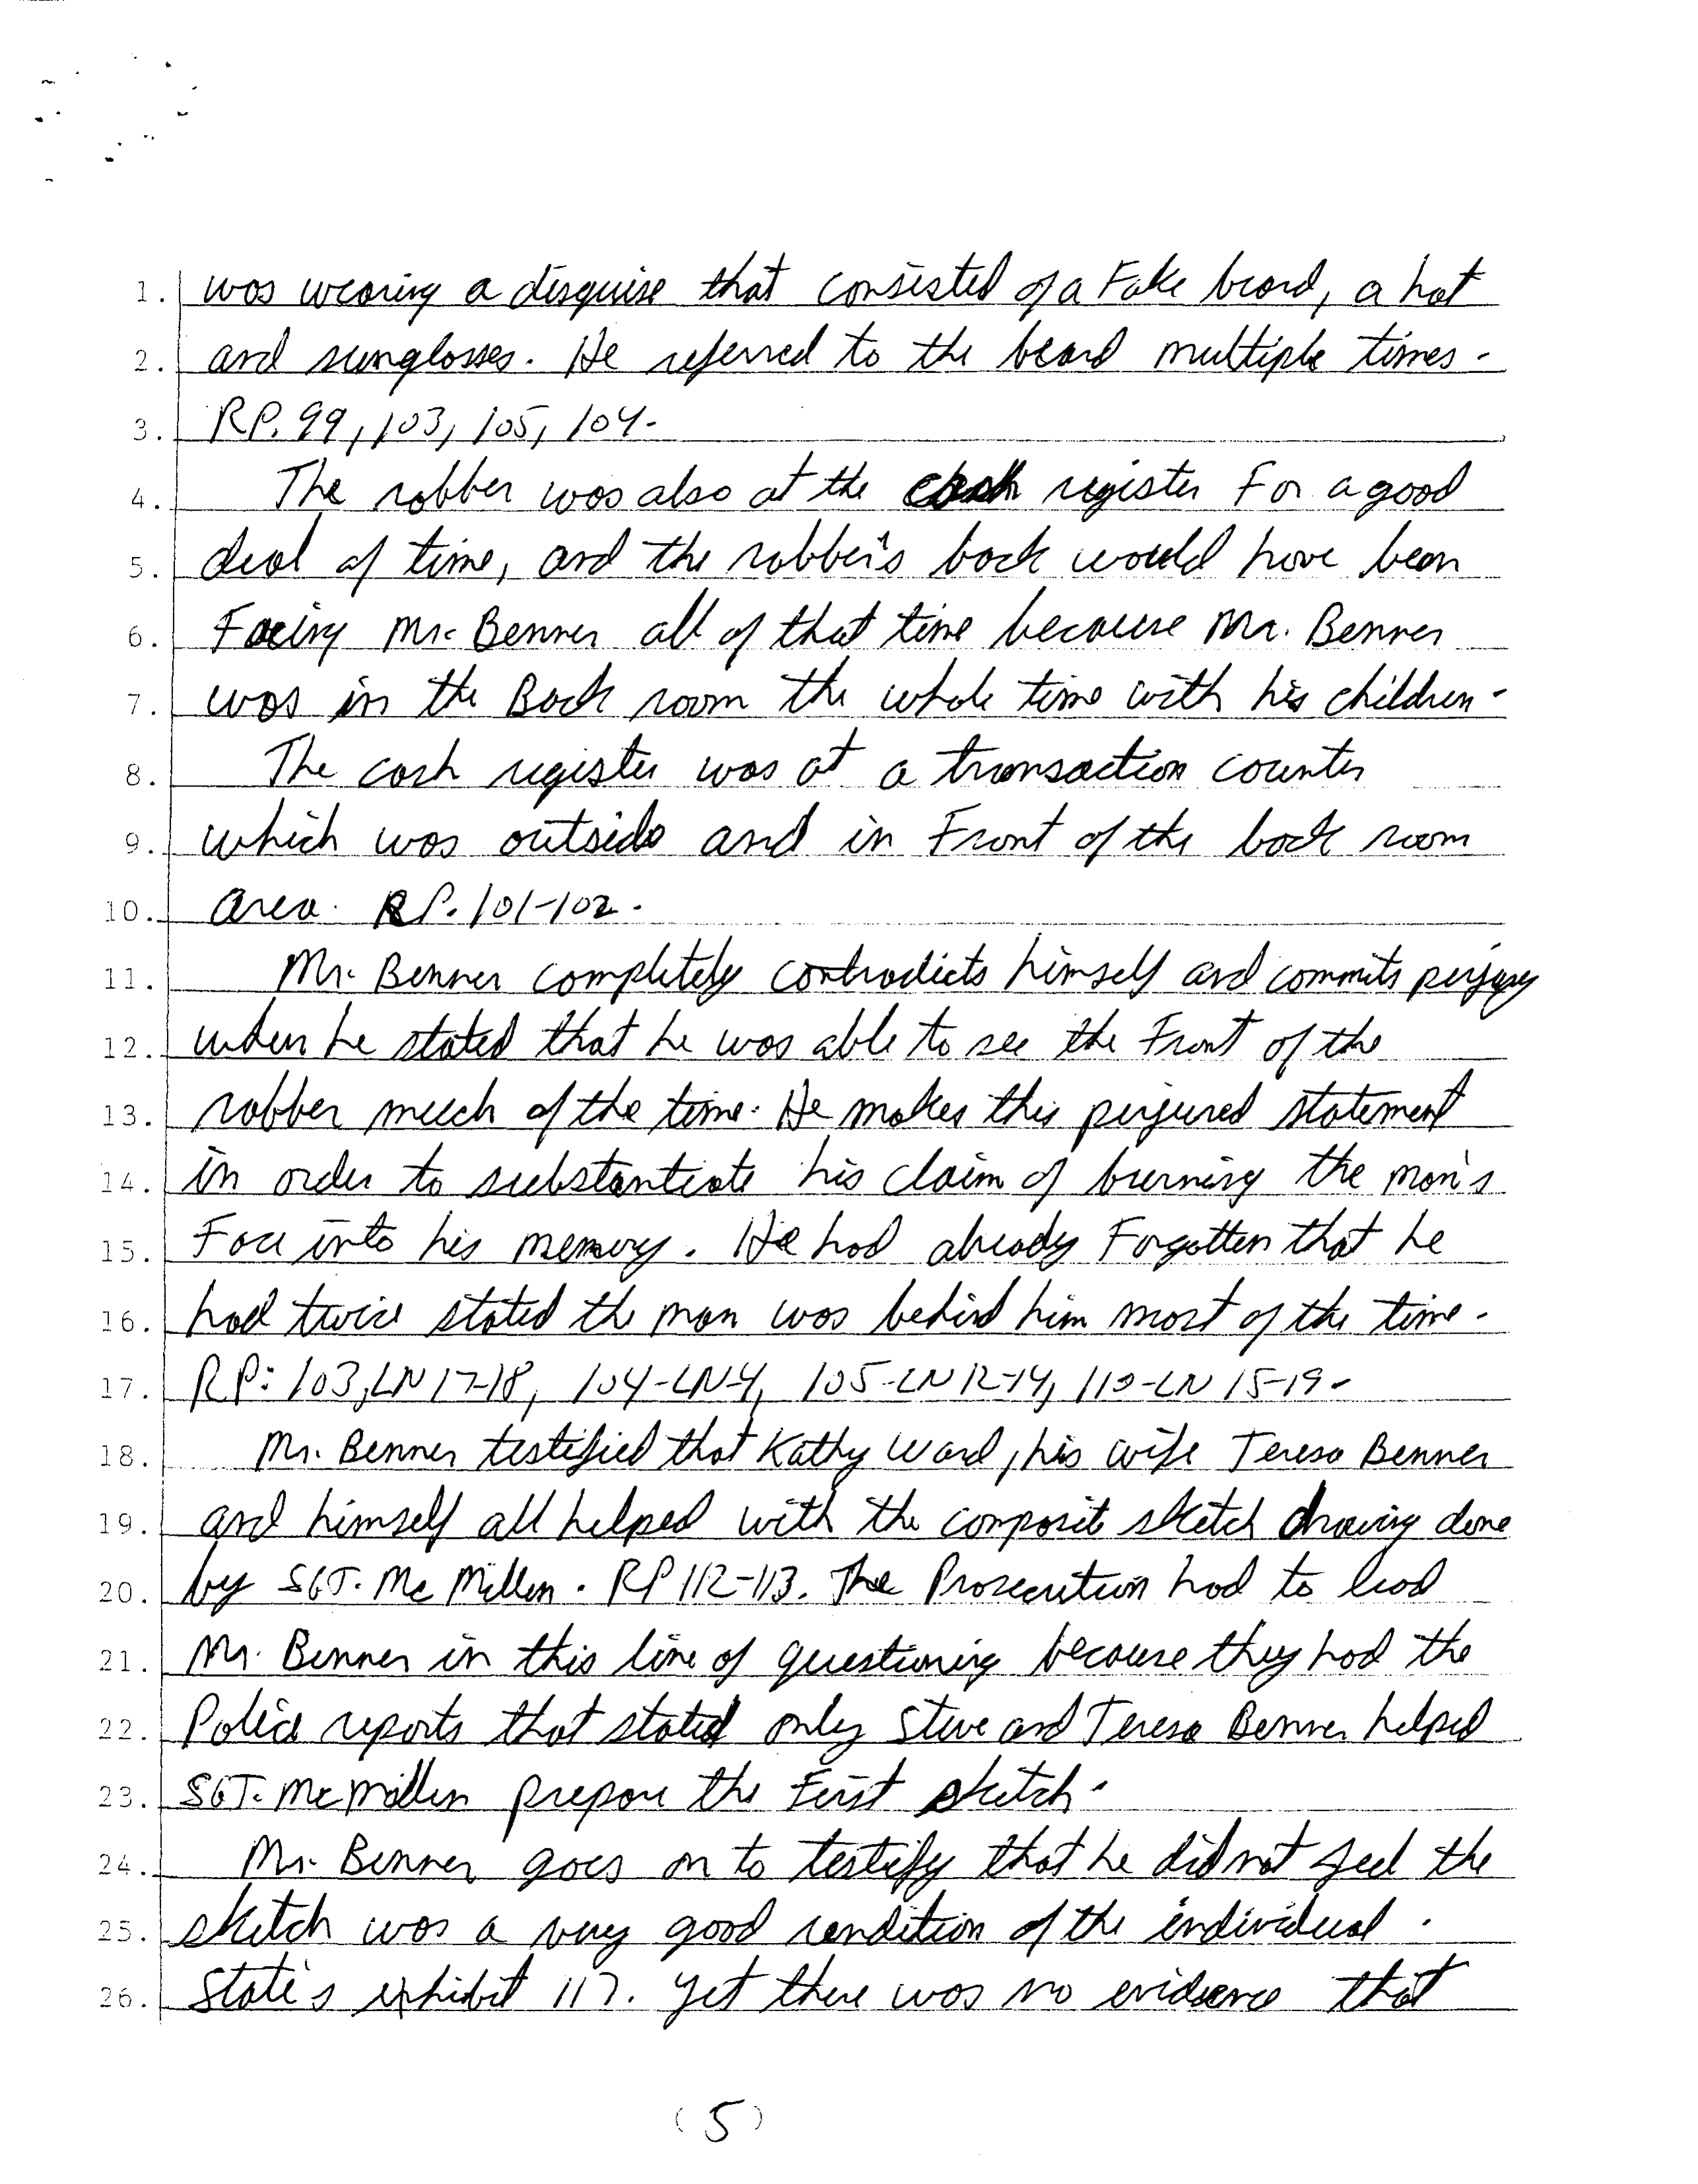 1. was wearing a disguise that consisted of a Fake beard, a hat
2. and sunglasses. He referred to the beard multiple times.
3. RP. 99, 103, 105, 104.
4. The robber was also at the cash register For a good
5. deal of time, and the robber's back would have been
6. Facing Mr. Benner all of that time because Mr. Benner
7. was in the Back room the whole time with his children.
8. The cash register was at a transaction counter
9. which was outside and in Front of the back room
10. area. RP. 101-102.
11. Mr. Benner completely contradicts himself and commits perjury
12. when he stated that he was able to see the Front of the
13. robber much of the time. He makes this perjured statement
14. in order to substantiate his claim of burning the man's
15. Face into his memory. He had already Forgotten that he
16. had twice stated the man was behind him most of the time.
17. RP: 103, LN 17-18, 104-LN-4, 105-LN 12-14, 110-LN 15-19.
18. Mr. Benner testified that Kathy Ward, his wife Teresa Benner
19. and himself all helped with the composit sketch drawing done
20. by SGT. McMillen. RP 112-113. The Prosecution had to lead
21. Mr. Benner in this line of questioning because they had the
22. Police reports that stated only Steve and Teresa Benner helped
23. SGT. McMillen prepare the First sketch.
24. Mr. Benner goes on to testify that he did not feel the
25. sketch was a very good rendition of the individual.
26. State's exhibit 117. Yet there was no evidence that
(5)